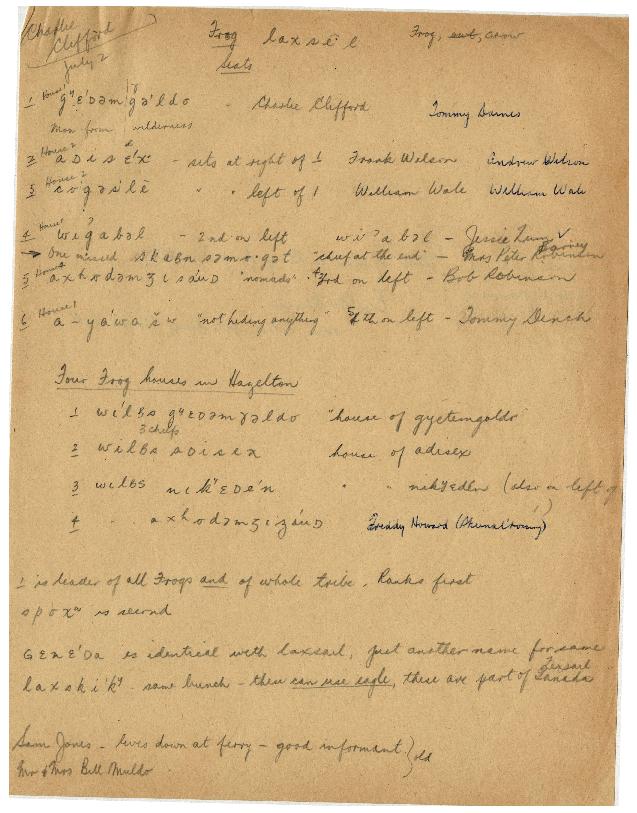 Charlie
Clifford
July 2
Frog laxsē'l Frog, owl, crow
Seats
1 House 1 gʸɛ'Dəmgā'ldo - Charlie Clifford Tommy Barnes
Man from wilderness
2 House 2 aDisɛ'x - sits at right of 1 Frank Wilson Andrew Wilson
3 House 2 " " left of 1 William Wale William Wale
4 House 1 wi'gabəl - 2nd on left wi'ʔabəl - Jessie
→ One missed skabn səmo·gət "chief at the end" - Mrs Peter Robinson
5 House 4 "nomads" 3rd on left - Bob Robinson
6 House 1 a-yá'wa's̆w "not hiding anything" 5th on left - Tommy Dench
Four Frog houses in Hazelton
1 wi'lBs gʸɛDəmɣaldo "house of gyetemgoldo
3 chiefs
2 wilBs house of adisex
3 wilBs nikʸɛDe'n " " (also on left of
4 " Freddy Howard
1 is leader of all Frogs and of whole tribe. Ranks first
spoxʷ is second
GɛnɛˈDa is identical with laxsail, just another name for same
laxski'kʸ same bunch - then can use eagle, these are part of Ganada
Sam Jones - lives down at ferry - good informant } old
Mr & Mrs Bill Muldo